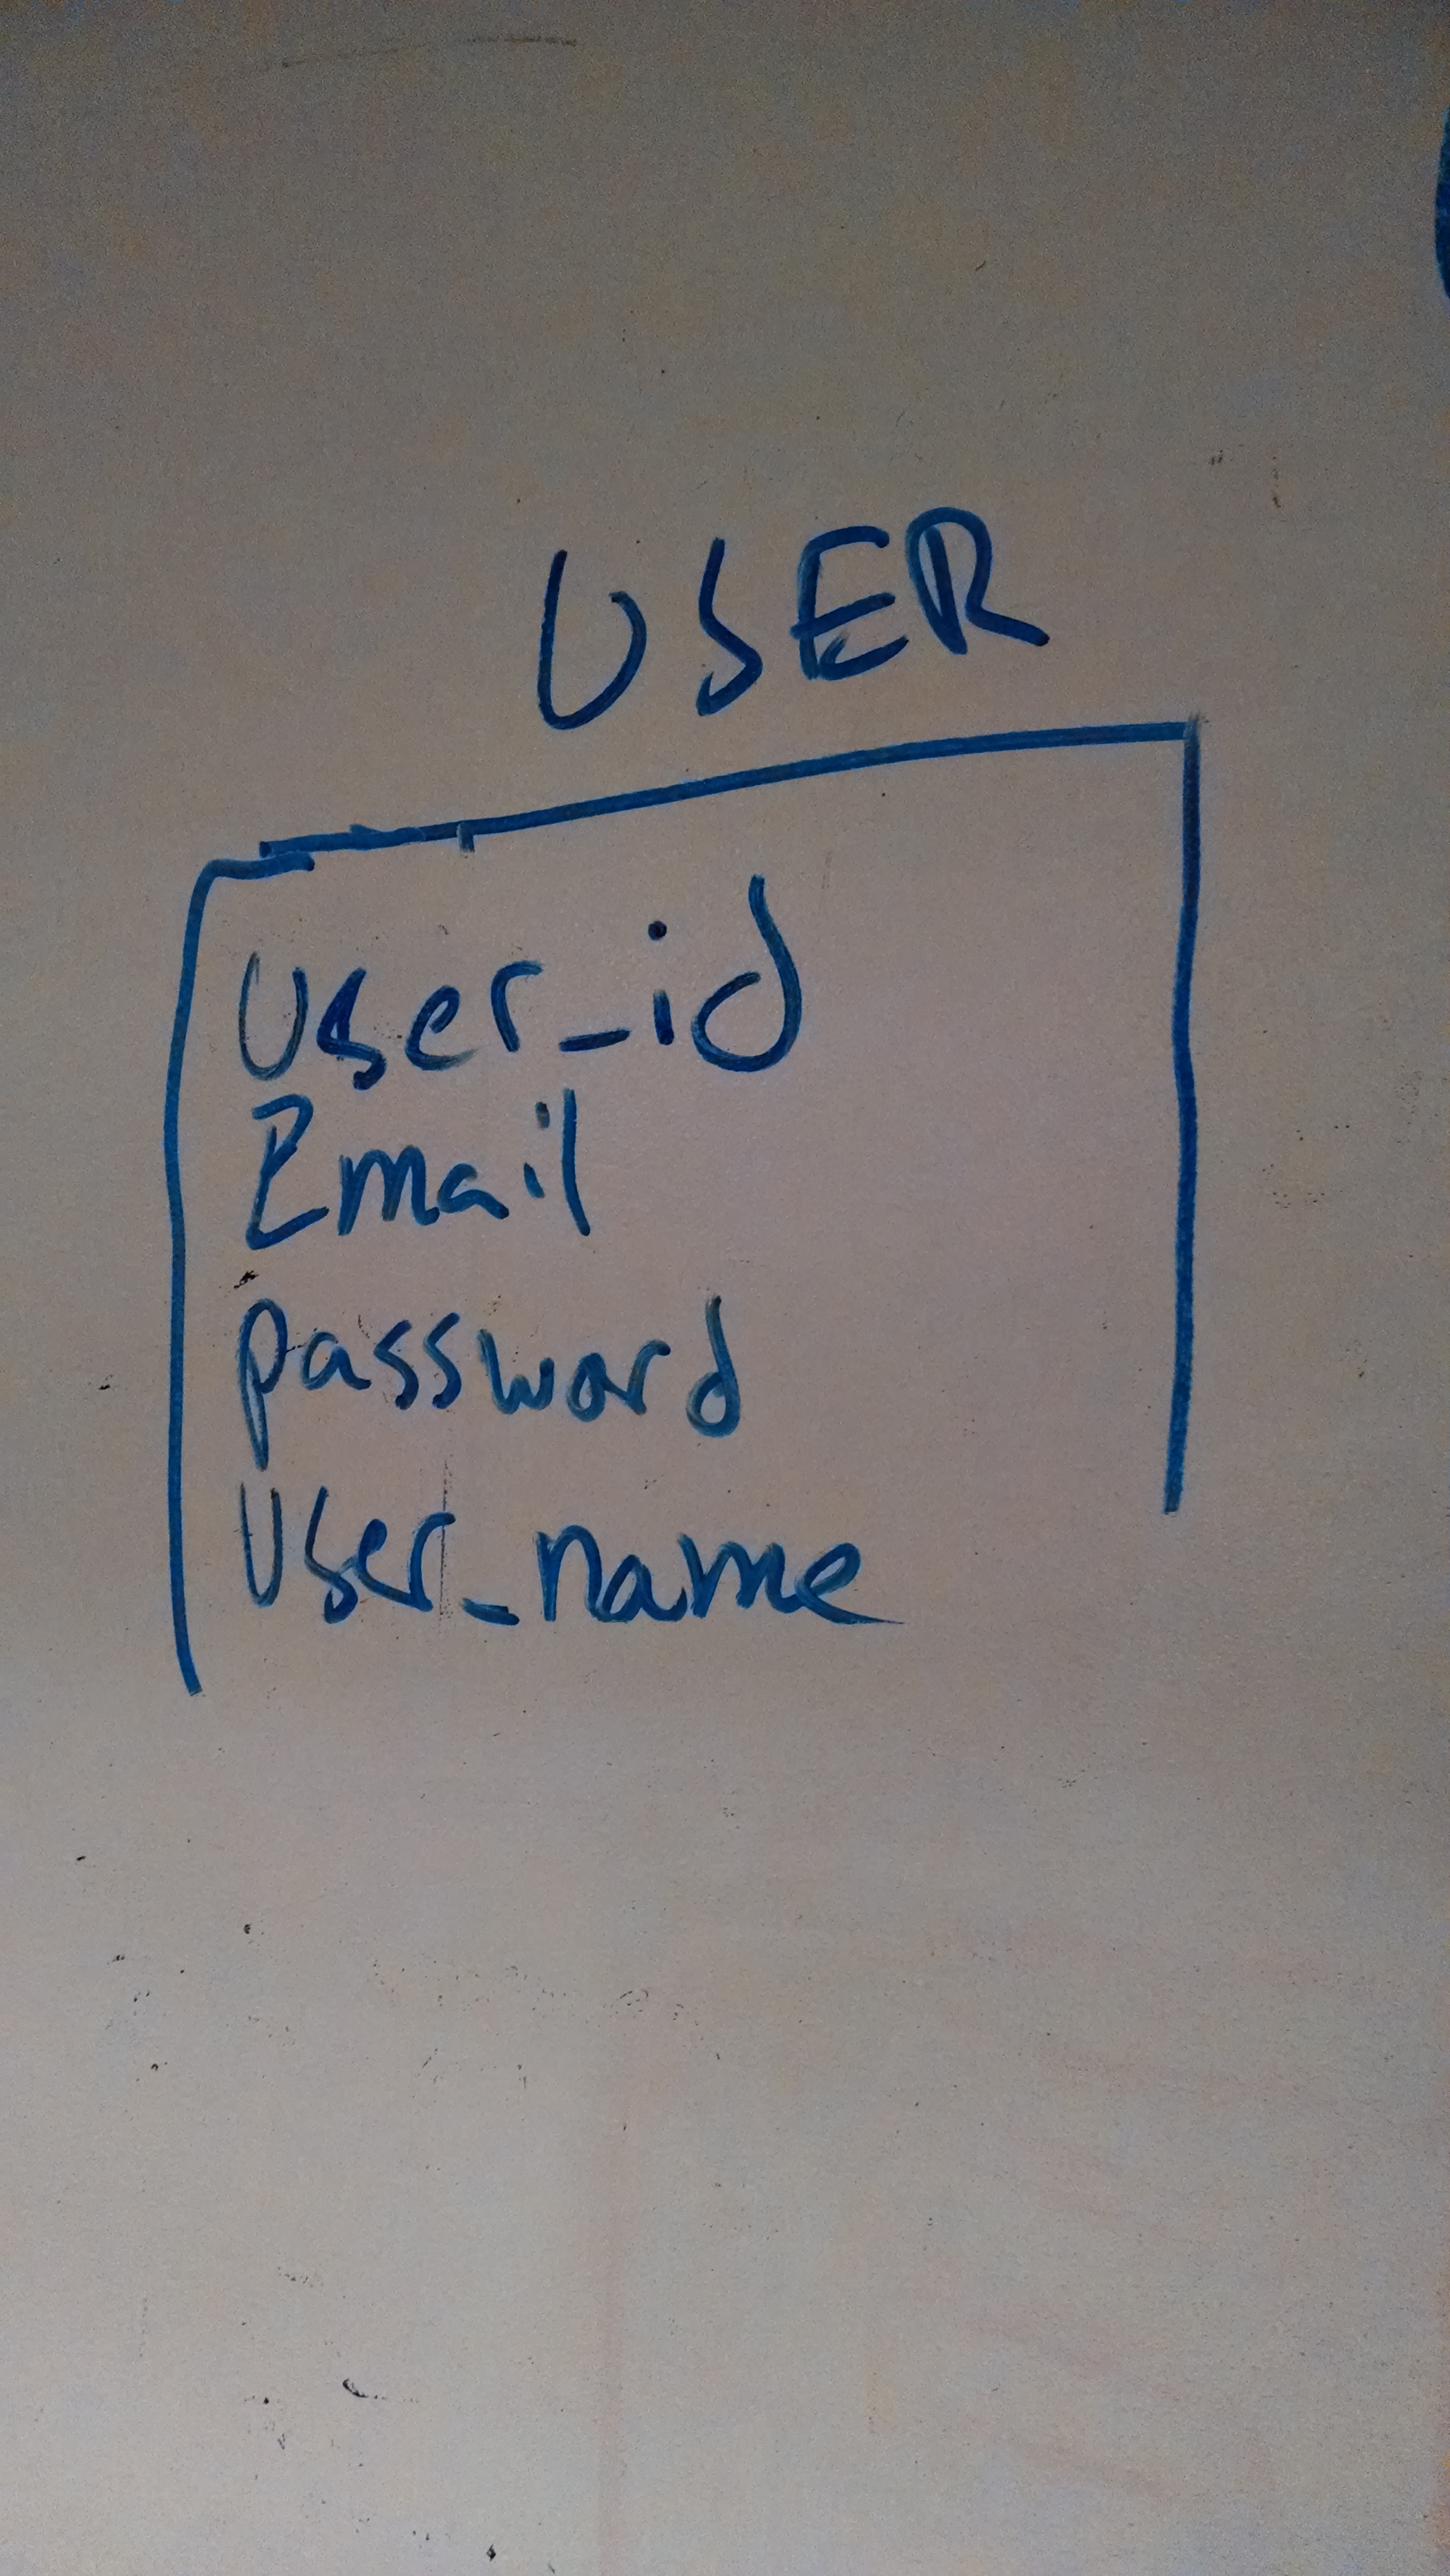 USER
User_id
Email
password
User_name